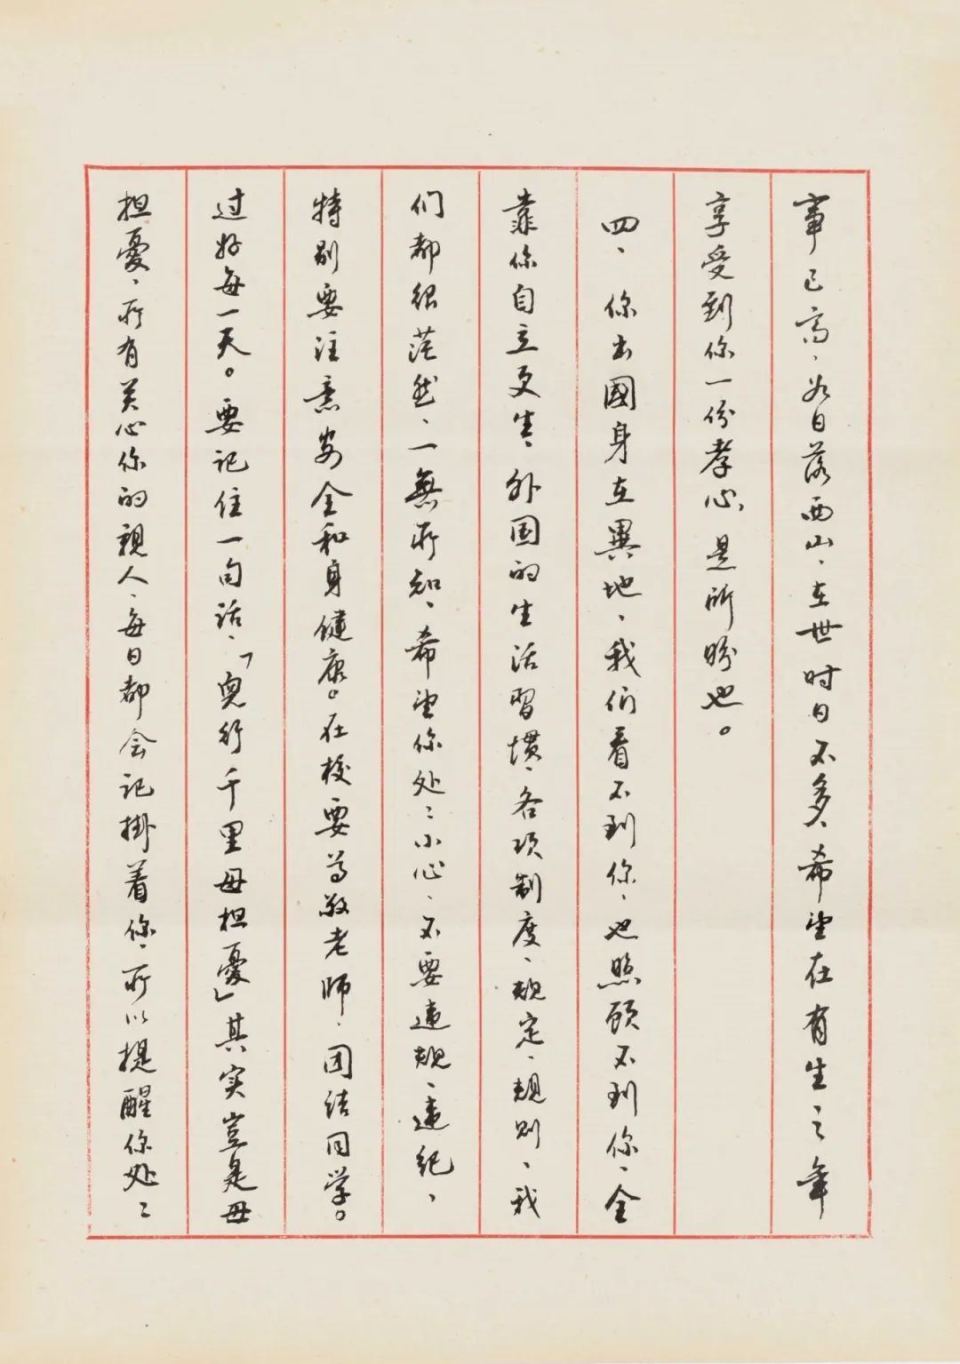 事已高、如日落西山、在世时日不多、希望在有生之年
享受到你一份孝心、是所盼也。
四、你出國身在異地、我们看不到你、也照顾不到你、全
靠你自立更生、外国的生活習慣、各项制度、规定、规则、我
们都很茫然、一無所知、希望你处〻小心、不要違规、違纪、
特别要注意安全和身健康。在校要尊敬老师、团结同学。
过好每一天。要记住一句话、「兒行千里母担憂」其实岂是母
担憂、所有关心你的親人、每日都会记掛着你、所以提醒你处〻